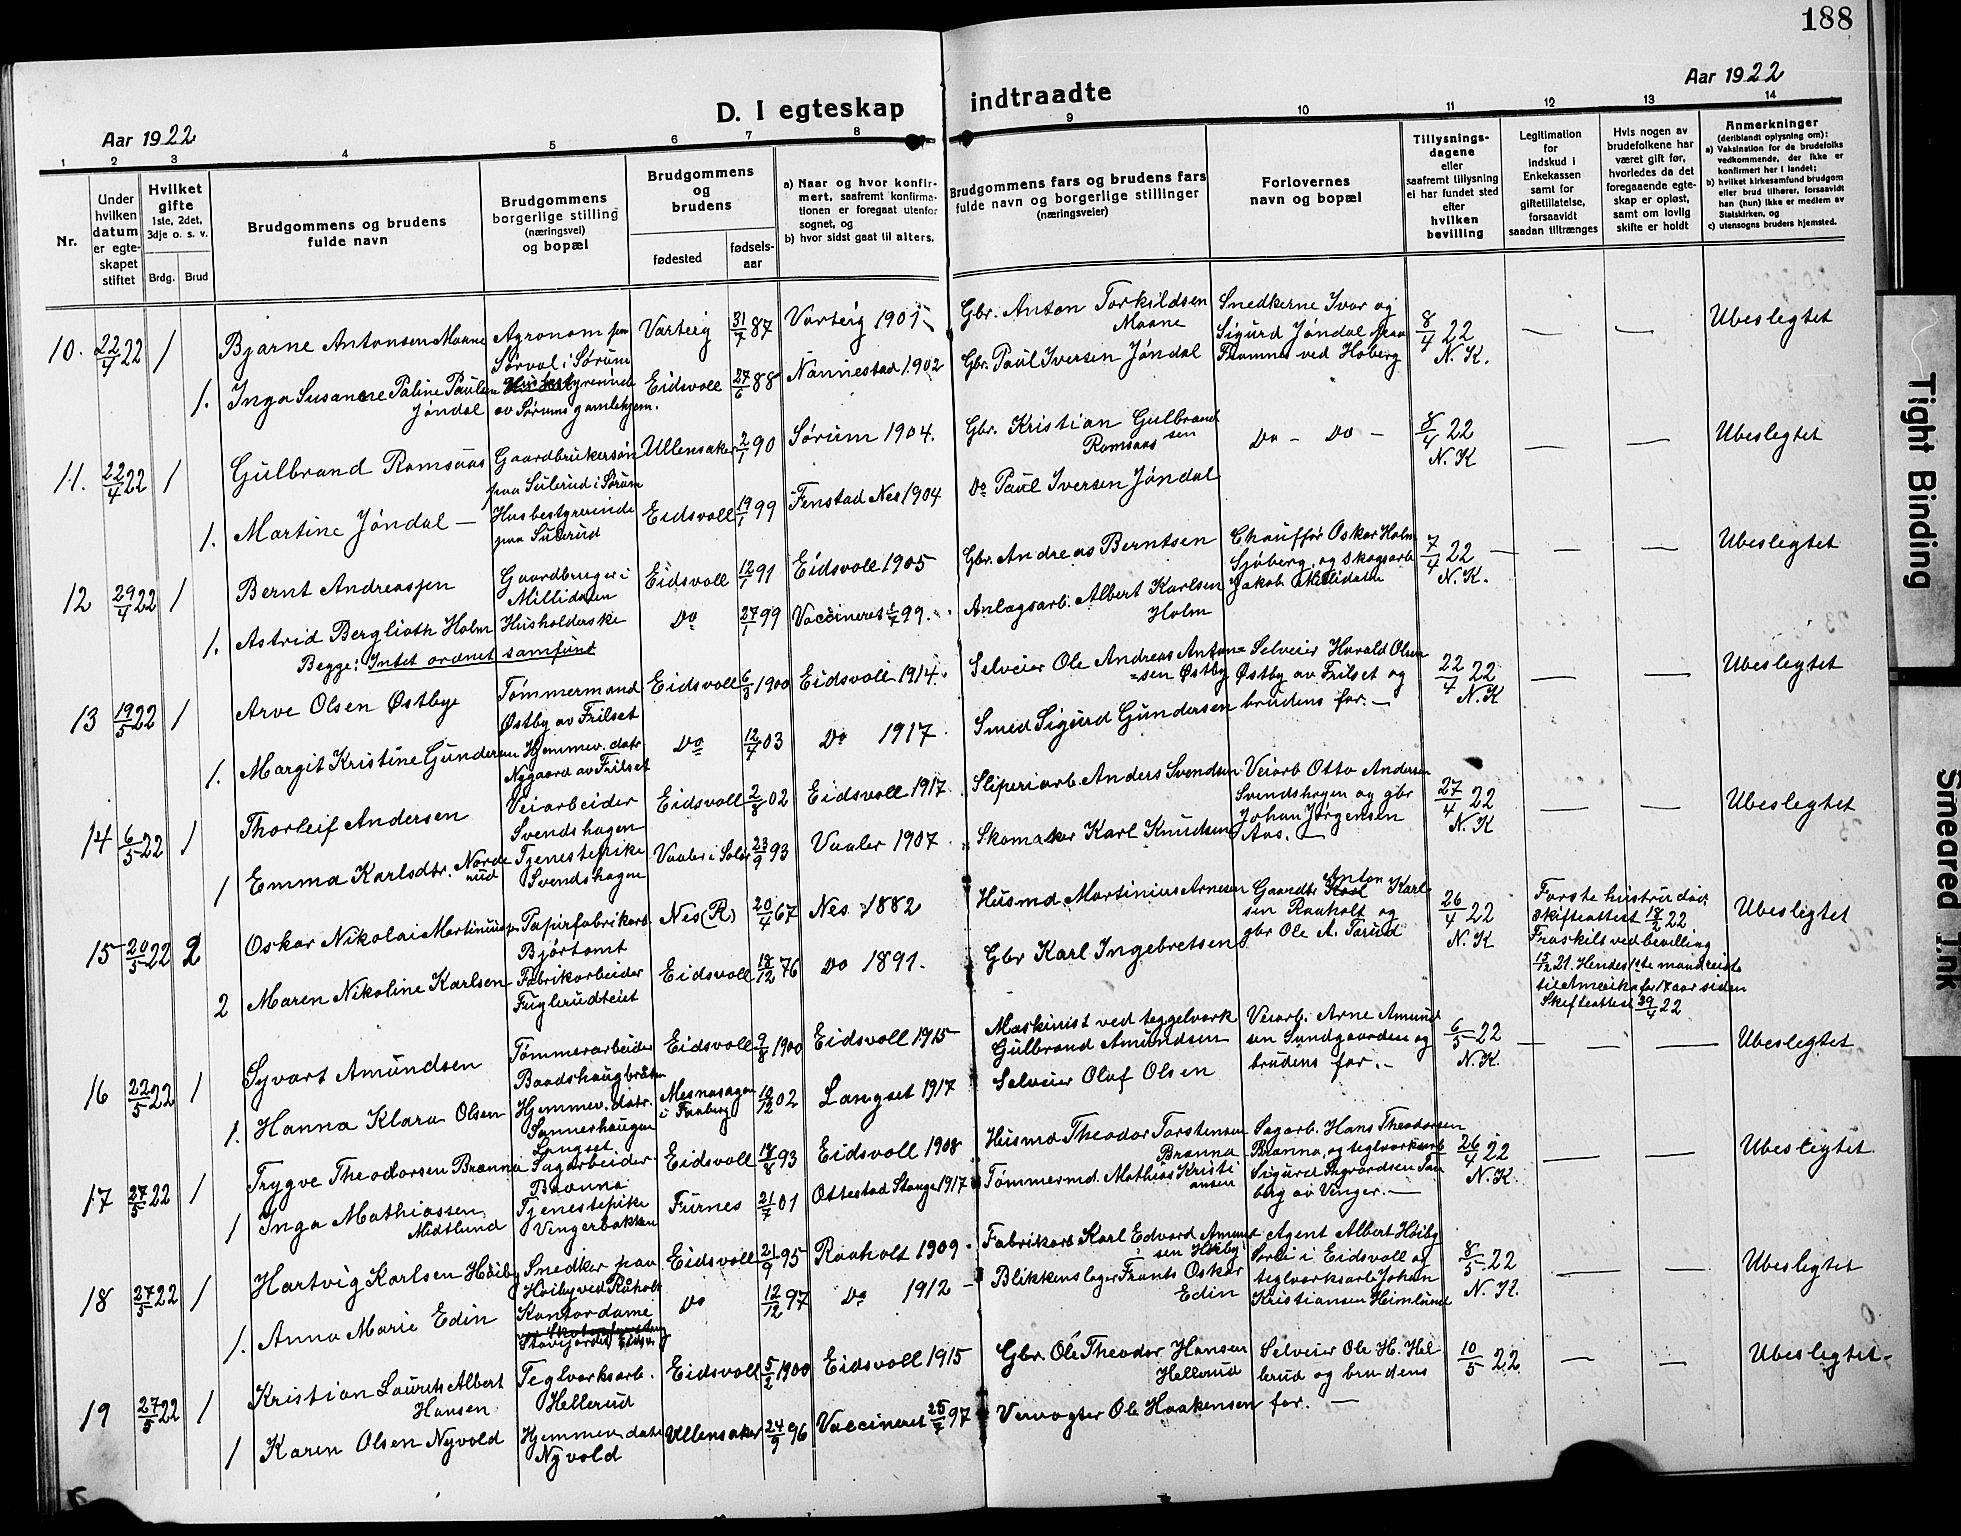 188
Aar 1922
D. I egteskap
indtraadte
Aar 1922
1 2 3 4 5 6 7 8 9 10 11 12 13 14
Nr.
Under hvilken datum er egte-skapet stiftet
Hvilket gifte
1ste, 2det, 3dje o. s. v.
Brdg. Brud
Brudgommens og brudens fulde navn
Brudgommens borgerlige stilling (næringsvei) og bopæl
Brudgommens og brudens
fødested
fødsels-aar
a) Naar og hvor konfir-mert, saafremt konfirma-tionen er foregaat utenfor sognet, og
b) hvor sidst gaat til alters.
Brudgommens fars og brudens fars fulde navn og borgerlige stillinger (næringsveier)
Forlovernes navn og bopæl
Tillysnings-dagene eller saafremt tillysning ei har fundet sted efter hvilken bevilling
Legitimation for indskud i Enkekassen samt for giftetillatelse, forsaavidt saadan tiltrænges
Hvis nogen av brudefolkene har været gift før, hvorledes da det foregaaende egte-skap er opløst, samt om lovlig skifte er holdt
Anmerkninger
(deriblandt oplysning om):
a) Vaksination for de brudefolks vedkommende, der ikke er konfirmert her i landet;
b) hvilket kirkesamfund brudgom eller brud tilhører, forsaavidt han (hun) ikke er medlem av Statskirken, og
c) utensogns bruders hjemsted.
10. 22/4 22 1 Bjarne Antonsen Maane Agronom paa Sørval i Sørum Varteig 31/7 87 Varteig 1901 Gbr. Anton Torkildsen Maane Snedkerne Ivar og Sigurd Jøndal paa ved Hoberg 8/4 22 N. K. — — Ubeslegtet
1. Inga Susanne Paline Paulsen Jøndal av Sørums gamlehjem. Eidsvoll 27/6 88 Nannestad 1902 Gbr. Paul Iversen Jøndal
11. 22/4 22 1 Gulbrand Romsaas Gaardbrukersøn paa Sulerud i Sørum Ullensaker 2/1 90 Sørum 1904. Gbr. Kristian Gulbrandsen Romsaas Do - Do - 8/4 22 N. K — — Ubeslegtet
1. Martine Jøndal — Husbestyrerinde paa Sulerud Eidsvoll 19/1 99 Fenstad Nes 1904 Do Paul Iversen Jøndal
12 29/4 22 1 Bernt Andreassen Gaardbruger i Millidalen Eidsvoll 12/1 91 Eidsvoll 1905 Gbr. Andreas Berntsen Chauffør Oskar Holm Sjøberg, og Skogsarb Jakob Millidalen 7/4 22 — N. K. — — Ubeslegtet
1. Astrid Berglioth Holm Husholderske Do 27/1 99 Vaccineret 99. Anlægsarb. Albert Karlsen Holm
Begge: Intet ordnet samfund
13 19/5 22 1 Arve Olsen Østbye Tømmermand Østby av Frilset Eidsvoll 6/3 1900 Eidsvoll 1914. Selveier Ole Andreas Anton=sen Østby Selveier Harald Olsen Østby av Frilset og brudens far. — 22/4 22 N. K — — Ubeslegtet
1. Margit Kristine Gundersen Hjemmev. datr Nygaard av Frilset Do 12/4 03 Do 1917 Smed Sigurd Gundersen
14 6/5 22 1 Thorleif Andersen Veiarbeider Svendshagen Eidsvoll 2/8 02 Eidsvoll 1917 Sliperiarb. Anders Svendsen Veiarb Otto Andersen Svendshagen og gbr Johan Jørgensen Aas. — 27/4 22 N. K — — Ubeslegtet
1 Emma Karlsdtr. Norderud Tjenestepike Svendshagen Vaaler i Solør 23/9 93 Vaaler 1907 Skomaker Karl Knudsen
15 20/5 22 2 Oskar Nikolai Martiniussen Papirfabrikarb. Bjørtomt Nes (R) 20/4 67 Nes 1882 Husmd Martinius Arnesen Gaardbr Anton Karlsen Raaholt og gbr Ole A. Tarud 26/4 22 N. K Første hustru død, skifteattest 18/2 22 Fraskilt ved bevilling 15/2 21. Hendes 1te mand reiste til Amerika for 17 aar siden Skifteattest 29/4 22 Ubeslegtet
2 Maren Nikoline Karlsen Fabrikarbeider Fuglerudteiet Eidsvoll 18/12 76 Do 1891. Gbr Karl Ingebretsen
16 22/5 22 1 Syvart Amundsen Tømmerarbeider Baadshaugbraaten Eidsvoll 9/8 1900 Eidsvoll 1915 Maskinist ved teggelverk Gulbrand Amundsen Veiarb. Arne Amundsen Sundgaarden og brudens far. — 6/5 22 N. K. — — — Ubeslegtet
1. Hanna Klara Olsen Hjemmev. datr. Sannerhaugen Langset. Mesnasagen i Faaberg 10/12 02 Langset 1917 Selveier Olaf Olsen
17 27/5 22 1 Trygve Theodorsen Brænna Sagarbeider Brænna Eidsvoll 18/8 93 Eidsvoll 1908 Husmd Theodor Torstensen Brænna Sagarb. Hans Theodorsen Brænna, og teglverksarb Sigurd Ingvardsen av Venger. — 26/4 22 N. K. — — Ubeslegtet
1 Inga Mathiassen Midtlund Tjenestepike Vengerbakken Furnes 21/7 01 Ottestad Stange 1917 Tømmermd. Mathias Kristiansen
18 27/5 22 1 Hartvig Karlsen Høiby Snedker paa Høiby ved Raaholt Eidsvoll 21/9 95 Raaholt 1909 Fabrikarb Karl Edvard Amundsen Høiby Agent Albert Høiby i Eidsvoll og teglverksarb Johan Kristiansen Heimlund 8/5 22 N. K. — — Ubeslegtet
1. Anna Marie Edin Kontordame Do 12/12 97 Do 1912 — Blikkenslager Frants Oskar Edin
19 27/5 22 1 Kristian Laurits Albert Hansen Teglverksarb. Hellerud Eidsvoll 5/2 1900 Eidsvoll 1915 Gbr. Ole Theodor Hansen Hellerud Selveier Ole H. Hellerud og brudens far. — 10/5 22 — — Ubeslegtet
1 Karen Olsen Nyvold Hjemmev. datr Nyvold Ullensaker 24/9 96 Vaccineret 25/7 97 Veivogter Ole Haakensen
Tight Binding
Smeared Ink